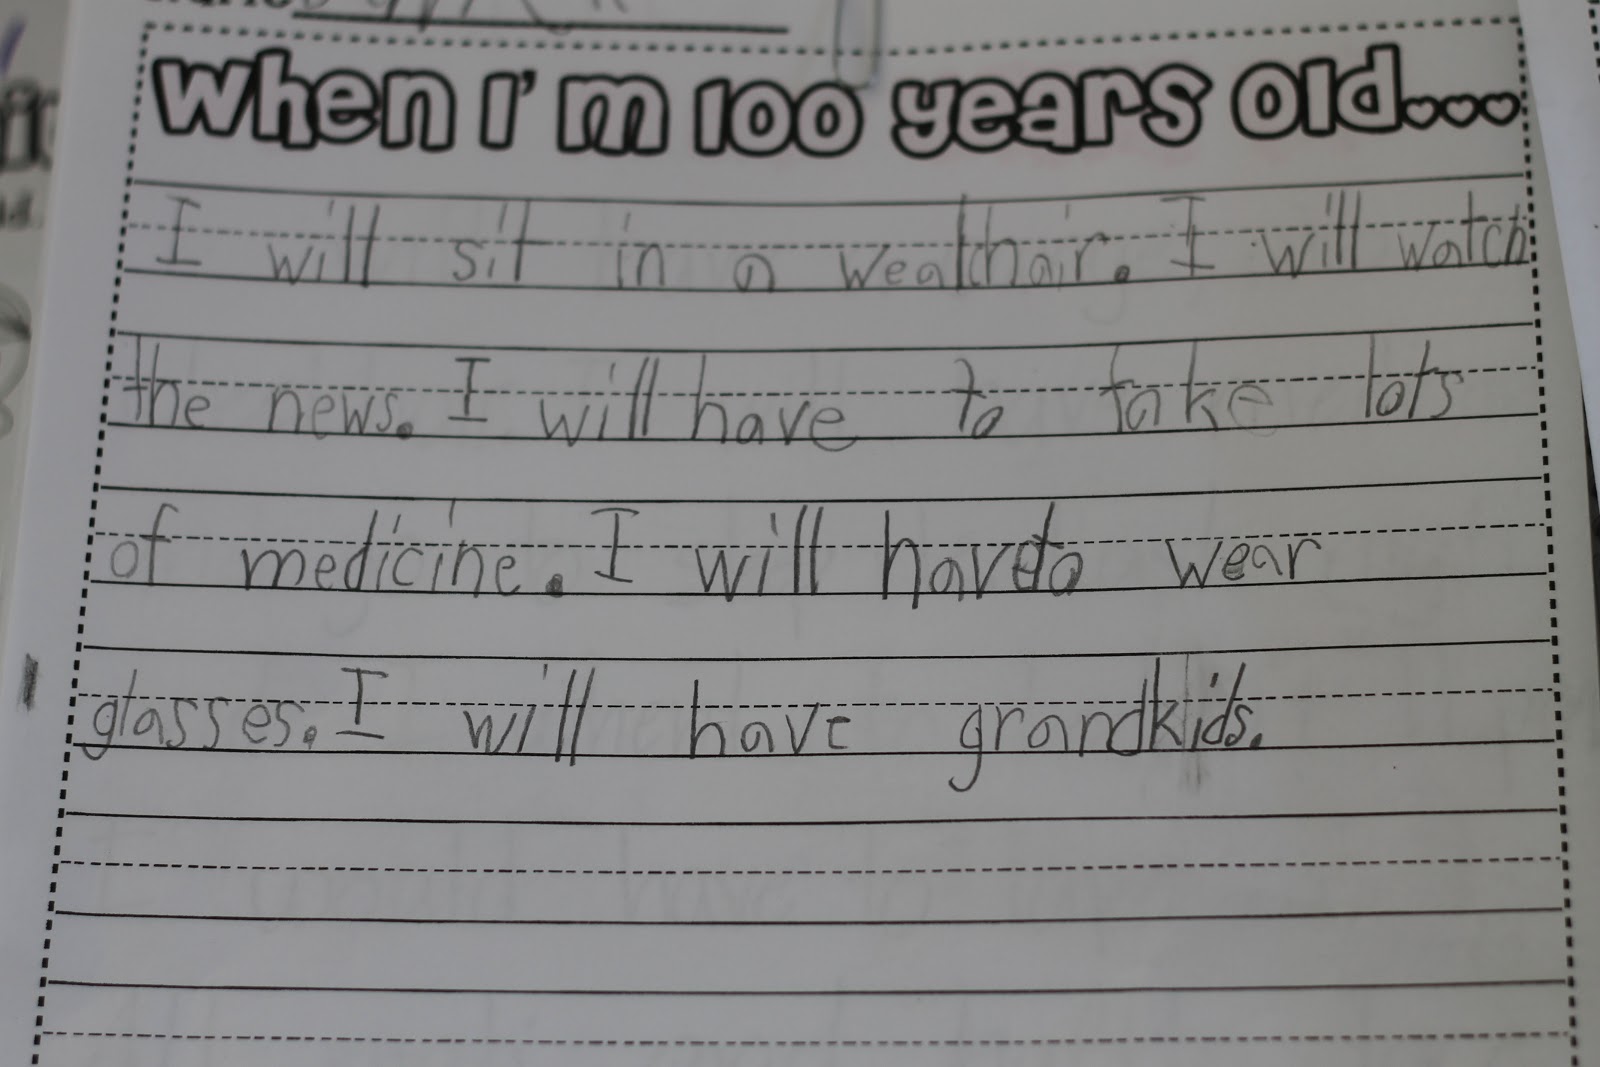 When I'm 100 years old...
I will sit in a wealchair. I will watch
the news. I will have to take lots
of medicine. I will haveto wear
glasses. I will have grandkids.